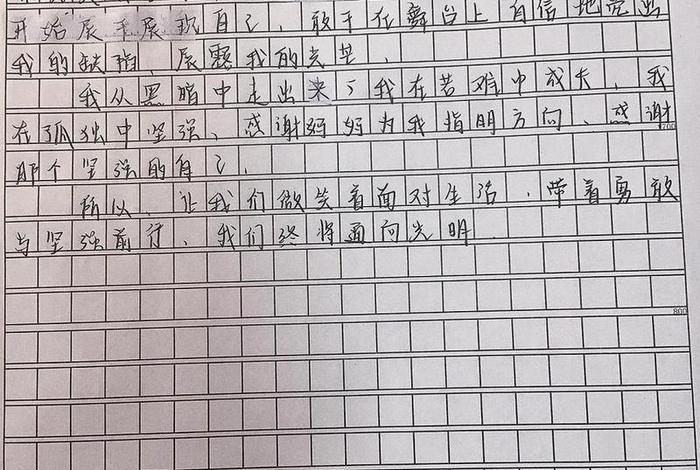 开始展手展现自己，敢于在舞台上自信地亮出
我的缺陷、展露我的光芒．
我从黑暗中走出来了我在苦难中成长，我
在孤独中坚强、感谢妈妈为我指明方向、感谢
700
那个坚强的自己．
所以、让我们做笑着面对生活．带着勇敢
与坚强前行、我们终将面向光明
800